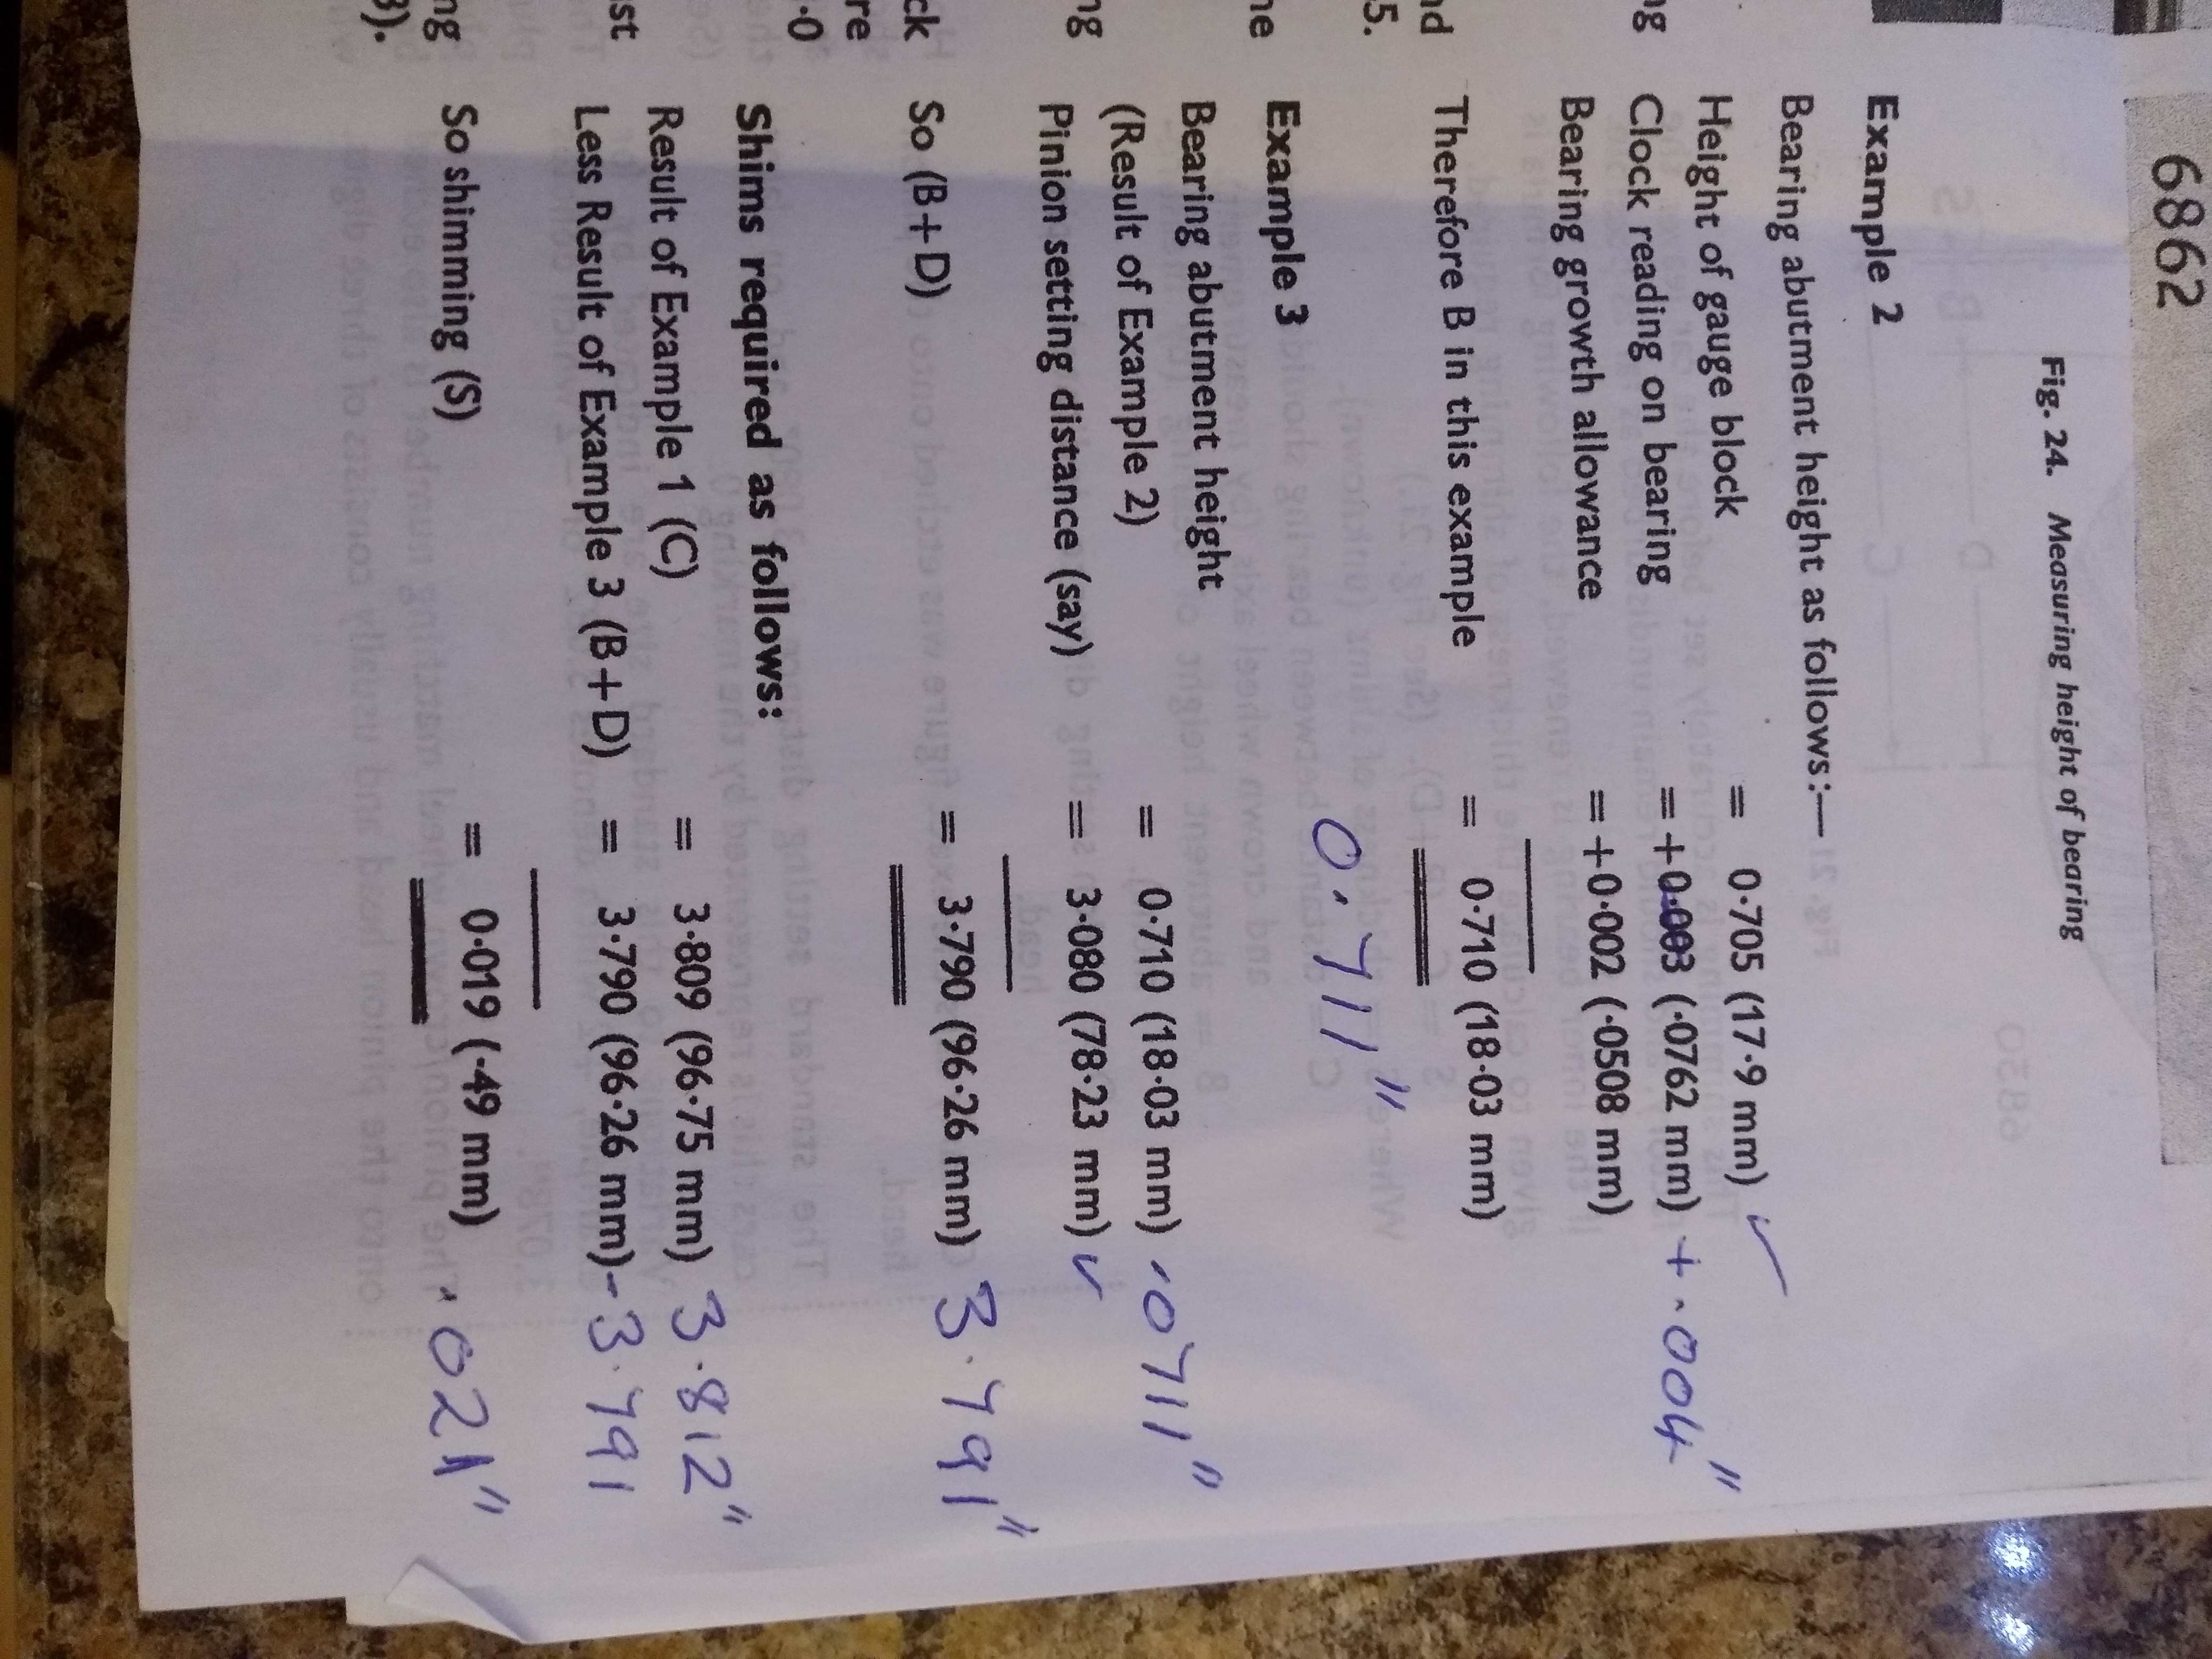 6862
Fig. 24. Measuring height of bearing
Example 2
Bearing abutment height as follows:—
Height of gauge block = 0·705 (17·9 mm) ✓
Clock reading on bearing = +0·003 (·0762 mm) + .004"
Bearing growth allowance = +0·002 (·0508 mm)
Therefore B in this example = 0·710 (18·03 mm)
0.711"
Example 3
Bearing abutment height
(Result of Example 2) = 0·710 (18·03 mm) .0711"
Pinion setting distance (say) = 3·080 (78·23 mm) ✓
So (B+D) = 3·790 (96·26 mm) 3.791"
Shims required as follows:
Result of Example 1 (C) = 3·809 (96·75 mm) 3.812"
Less Result of Example 3 (B+D) = 3·790 (96·26 mm) -3.791
So shimming (S) = 0·019 (·49 mm) .021"
ng
nd
5.
ne
ng
ck
re
·0
st
ng
3).